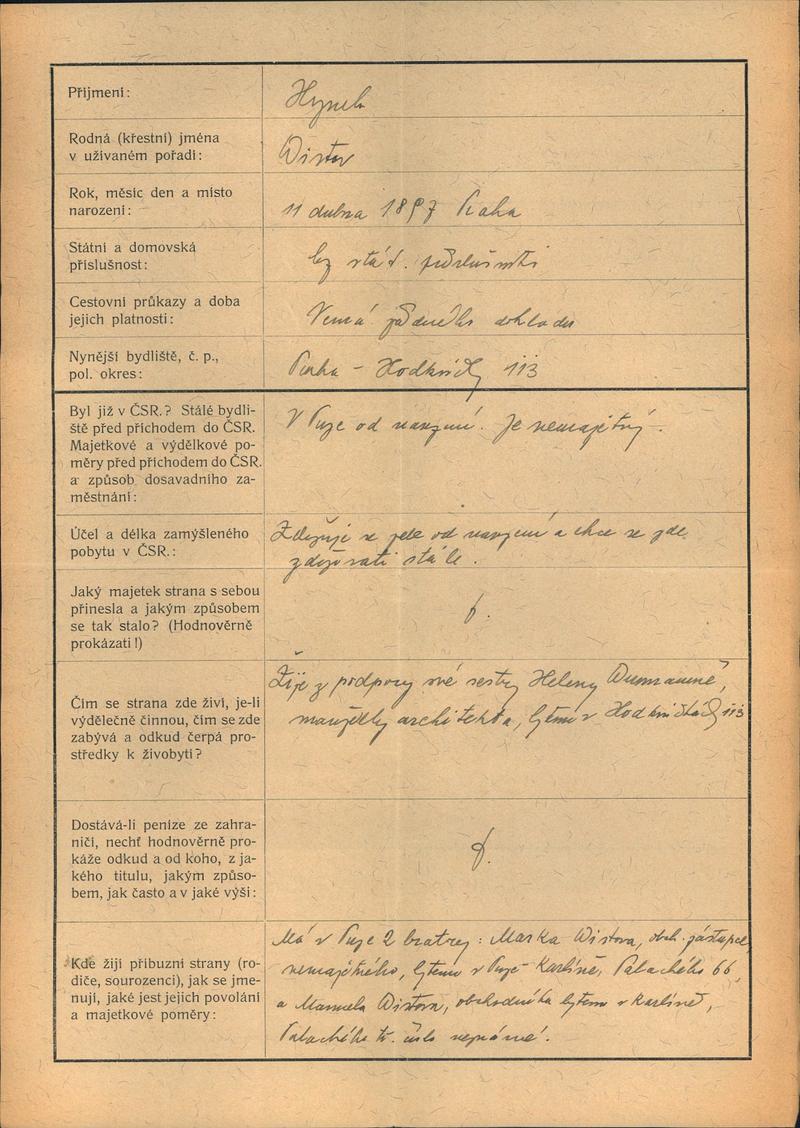 Příjmení:
Hynek
Rodná (křestní) jména
v užívaném pořadí:
Wistov
Rok, měsíc den a místo
narození:
11 dubna 1897 Praha
Státní a domovská
příslušnost:
bez stát. příslušnosti
Cestovní průkazy a doba
jejich platnosti:
Nemá žádného dokladu
Nynější bydliště, č. p.,
pol. okres:
Praha - Hodkovičky 113
Byl již v ČSR.? Stálé bydli-
ště před příchodem do ČSR.
Majetkové a výdělkové po-
měry před příchodem do ČSR.
a způsob dosavadního za-
městnání:
V Praze od narození. Je nemajetný.
Účel a délka zamýšleného
pobytu v ČSR.:
Zdržuje se zde od narození a chce se zde
zdržovati stále.
Jaký majetek strana s sebou
přinesla a jakým způsobem
se tak stalo? (Hodnověrně
prokázati!)
Čím se strana zde živí, je-li
výdělečně činnou, čím se zde
zabývá a odkud čerpá pro-
středky k živobytí?
Žije z podpory své sestry Heleny
manželky architekta, bytem v Hodkovičkách 113
Dostává-li peníze ze zahra-
ničí, nechť hodnověrně pro-
káže odkud a od koho, z ja-
kého titulu, jakým způso-
bem, jak často a v jaké výši:
Kde žijí příbuzní strany (ro-
diče, sourozenci), jak se jme-
nují, jaké jest jejich povolání
a majetkové poměry:
Má v Praze 2 bratry: Marka Wistova, obch. zástupce,
nemajetného, bytem v Praze Karlíně, Palackého 66,
a Manuela Wistova, obchodníka bytem v Karlíně,
Palackého tř. číslo neznámé.